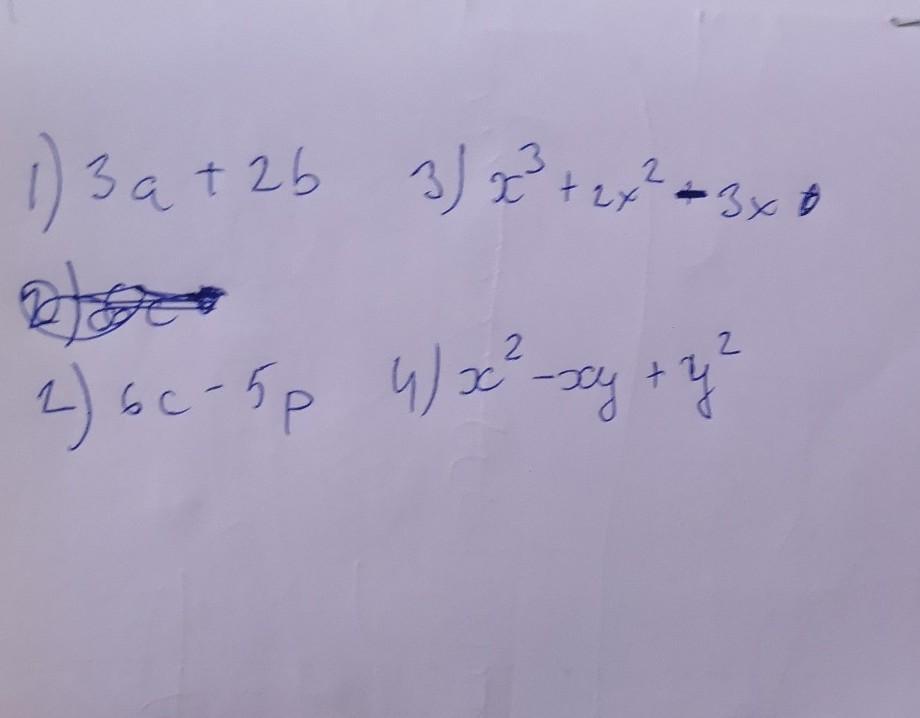 1) 3a + 2b
3) x³ + 2x² - 3x
2) 6c - 5p
4) x² - xy + y²